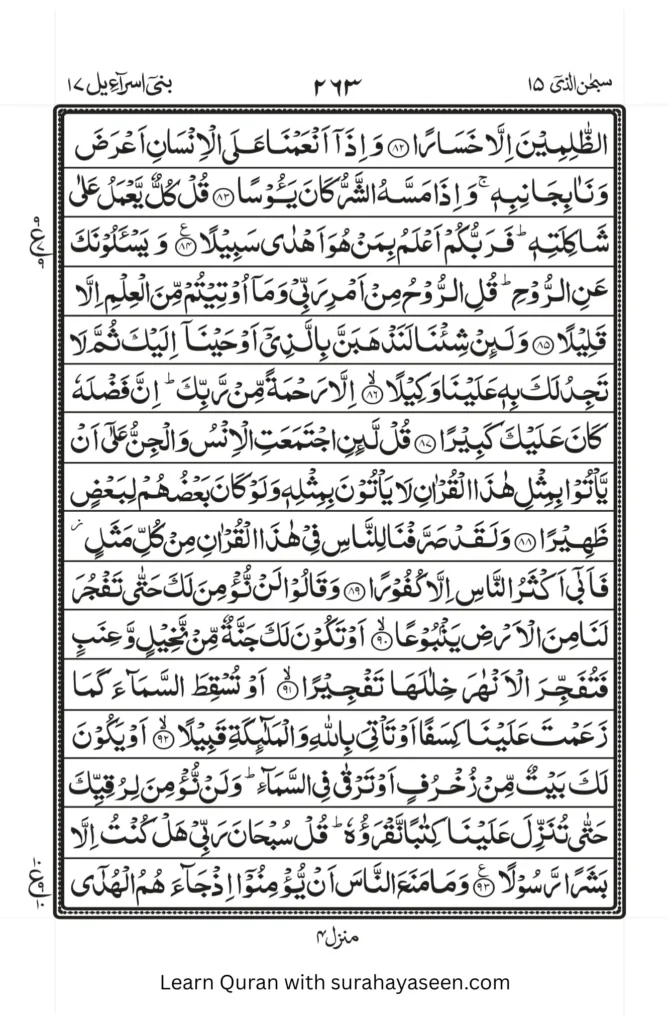 سبحٰن الذیٓ ۱۵ ۲۶۳ بنیٓ اسرآءیل ۱۷
الظّٰلِمِیْنَ اِلَّا خَسَارًا ﴿۸۲﴾ وَ اِذَاۤ اَنْعَمْنَا عَلَی الْاِنْسَانِ اَعْرَضَ
وَ نَاٰ بِجَانِبِهٖ ۚ وَ اِذَا مَسَّهُ الشَّرُّ کَانَ یَـُٔوْسًا ﴿۸۳﴾ قُلْ کُلٌّ یَّعْمَلُ عَلٰی
شَاکِلَتِهٖ ؕ فَرَبُّکُمْ اَعْلَمُ بِمَنْ هُوَ اَهْدٰی سَبِیْلًا ﴿۸۴﴾ وَ یَسْـَٔلُوْنَكَ
عَنِ الرُّوْحِ ؕ قُلِ الرُّوْحُ مِنْ اَمْرِ رَبِّیْ وَ مَاۤ اُوْتِیْتُمْ مِّنَ الْعِلْمِ اِلَّا
قَلِیْلًا ﴿۸۵﴾ وَ لَىِٕنْ شِئْنَا لَنَذْهَبَنَّ بِالَّذِیْۤ اَوْحَیْنَاۤ اِلَیْكَ ثُمَّ لَا
تَجِدُ لَكَ بِهٖ عَلَیْنَا وَکِیْلًا ﴿۸۶﴾ اِلَّا رَحْمَةً مِّنْ رَّبِّكَ ؕ اِنَّ فَضْلَهٗ
کَانَ عَلَیْكَ کَبِیْرًا ﴿۸۷﴾ قُلْ لَّىِٕنِ اجْتَمَعَتِ الْاِنْسُ وَ الْجِنُّ عَلٰۤی اَنْ
یَّاْتُوْا بِمِثْلِ هٰذَا الْقُرْاٰنِ لَا یَاْتُوْنَ بِمِثْلِهٖ وَ لَوْ کَانَ بَعْضُهُمْ لِبَعْضٍ
ظَهِیْرًا ﴿۸۸﴾ وَ لَقَدْ صَرَّفْنَا لِلنَّاسِ فِیْ هٰذَا الْقُرْاٰنِ مِنْ کُلِّ مَثَلٍ ؗ
فَاَبٰۤی اَکْثَرُ النَّاسِ اِلَّا کُفُوْرًا ﴿۸۹﴾ وَ قَالُوْا لَنْ نُّؤْمِنَ لَكَ حَتّٰی تَفْجُرَ
لَنَا مِنَ الْاَرْضِ یَنْۢبُوْعًا ﴿۹۰﴾ اَوْ تَکُوْنَ لَكَ جَنَّةٌ مِّنْ نَّخِیْلٍ وَّ عِنَبٍ
فَتُفَجِّرَ الْاَنْهٰرَ خِلٰلَهَا تَفْجِیْرًا ﴿۹۱﴾ اَوْ تُسْقِطَ السَّمَآءَ کَمَا
زَعَمْتَ عَلَیْنَا کِسَفًا اَوْ تَاْتِیَ بِاللّٰهِ وَ الْمَلٰٓىِٕکَةِ قَبِیْلًا ﴿۹۲﴾ اَوْ یَکُوْنَ
لَكَ بَیْتٌ مِّنْ زُخْرُفٍ اَوْ تَرْقٰی فِی السَّمَآءِ ؕ وَ لَنْ نُّؤْمِنَ لِرُقِیِّكَ
حَتّٰی تُنَزِّلَ عَلَیْنَا کِتٰبًا نَّقْرَؤُهٗ ؕ قُلْ سُبْحَانَ رَبِّیْ هَلْ کُنْتُ اِلَّا
بَشَرًا رَّسُوْلًا ﴿۹۳﴾ وَ مَا مَنَعَ النَّاسَ اَنْ یُّؤْمِنُوْۤا اِذْ جَآءَهُمُ الْهُدٰۤی
منزل ۴
Learn Quran with surahayaseen.com